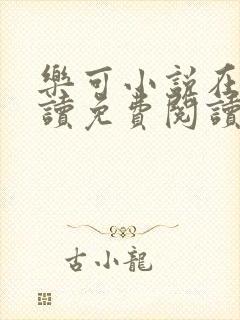 樂可小說在
讀免費閱讀
古小龍